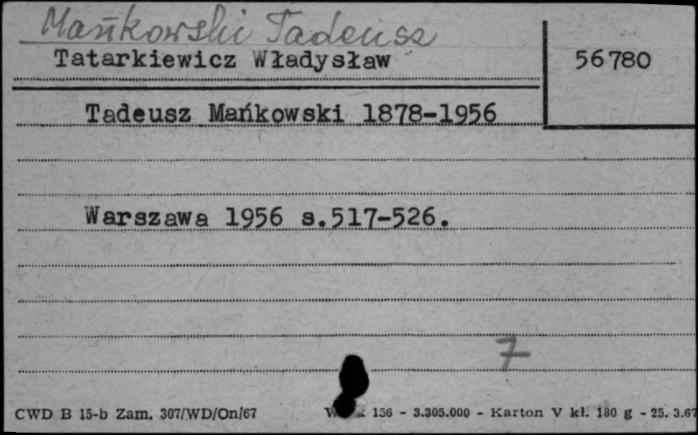 Mańkowski Tadeusz
Tatarkiewicz Władysław
56780
Tadeusz Mańkowski 1878-1956
Warszawa 1956 s.517-526.
7
CWD B 15-b Zam. 307/WD/On/67
156 - 3.305.000 - Karton V kl. 180 g - 25. 3.67